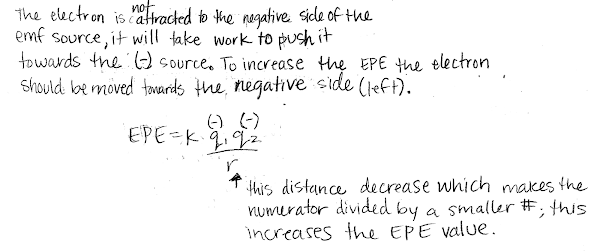 The electron is not attracted to the negative side of the
emf source, it will take work to push it
towards the (-) source. To increase the EPE the electron
should be moved towards the negative side (left).
(-) (-)
EPE = k q₁ q₂
r
this distance decrease which makes the
numerator divided by a smaller #; this
increases the EPE value.